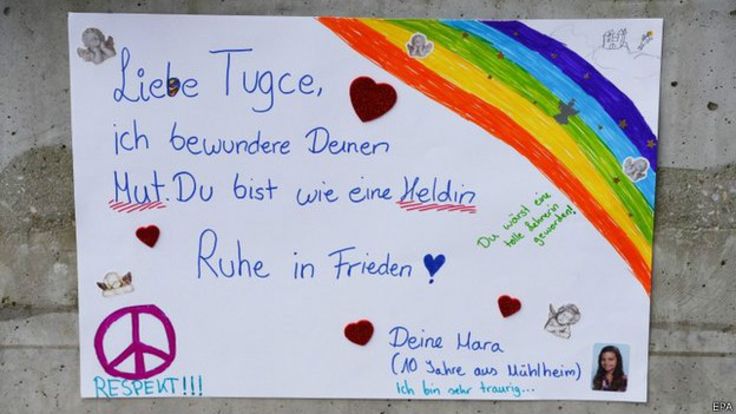 Liebe Tugce,
ich bewundere Deinen
Mut. Du bist wie eine Heldin
Du wärst eine
tolle Lehrerin
geworden!
Ruhe in Frieden
Deine Mara
(10 Jahre aus Mühlheim)
Ich bin sehr traurig...
RESPEKT!!!
EPA